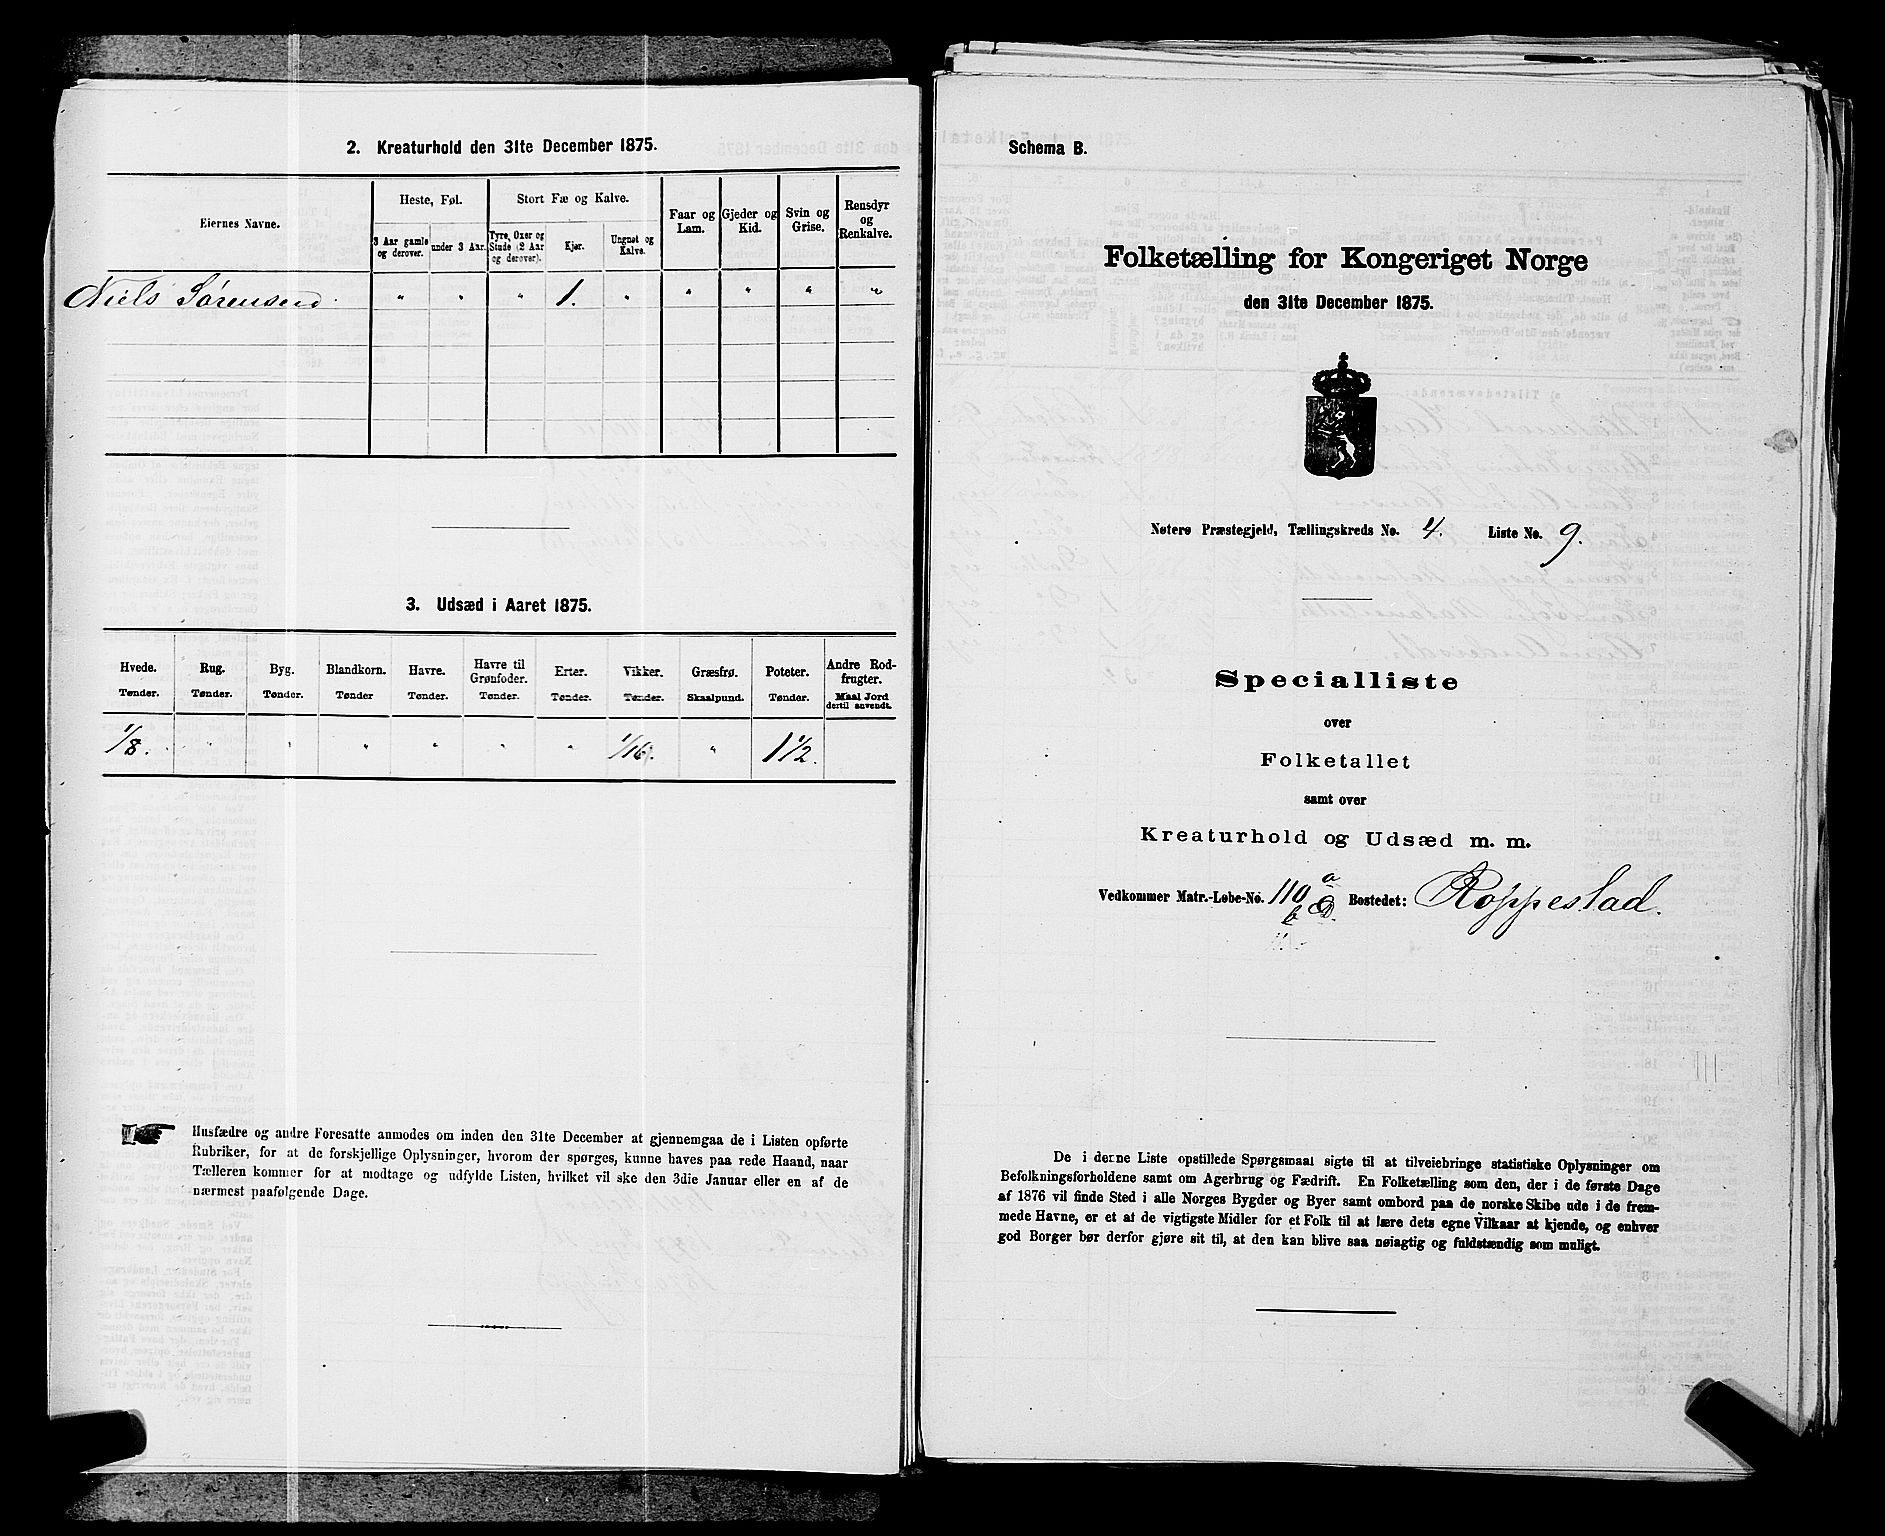 2. Kreaturhold den 31te December 1875.
Eiernes Navne.
Heste, Føl.
3 Aar gamle og derover.
under 3 Aar.
Stort Fæ og Kalve.
Tyre, Oxer og Stude (2 Aar og derover).
Kjør.
Ungnøt og Kalve.
Faar og Lam.
Gjeder og Kid.
Svin og Grise.
Rensdyr og Renkalve.
Niels Sørensen " " " 1. " " " " "
3. Udsæd i Aaret 1875.
Hvede. Rug. Byg. Blandkorn. Havre. Havre til Grønfoder. Erter. Vikker. Græsfrø. Poteter. Andre Rodfrugter.
Tønder. Tønder. Tønder. Tønder Tønder. Tønder. Tønder. Tønder. Skaalpund. Tønder. Maal Jord dertil anvendt.
1/8. " " " " " " 1/16. " 1 1/2.
Husfædre og andre Foresatte anmodes om inden den 31te December at gjennemgaa de i Listen opførte
Rubriker, for at de forskjellige Oplysninger, hvorom der spørges, kunne haves paa rede Haand, naar
Tælleren kommer for at modtage og udfylde Listen, hvilket vil ske den 3die Januar eller en af de
nærmest paafølgende Dage.
Schema B.
Folketælling for Kongeriget Norge
den 31te December 1875.
Nøterø Præstegjeld, Tællingskreds No. 4. Liste No. 9.
Specialliste
over
Folketallet
samt over
Kreaturhold og Udsæd m. m.
Vedkommer Matr.-Løbe-No. 110 a b Bostedet: Roppestad.
De i denne Liste opstillede Spørgsmaal sigte til at tilveiebringe statistiske Oplysninger om
Befolkningsforholdene samt om Agerbrug og Fædrift. En Folketælling som den, der i de første Dage
af 1876 vil finde Sted i alle Norges Bygder og Byer samt ombord paa de norske Skibe ude i de frem-
mede Havne, er et af de vigtigste Midler for et Folk til at lære dets egne Vilkaar at kjende, og enhver
god Borger bør derfor gjøre sit til, at den kan blive saa nøiagtig og fuldstændig som muligt.